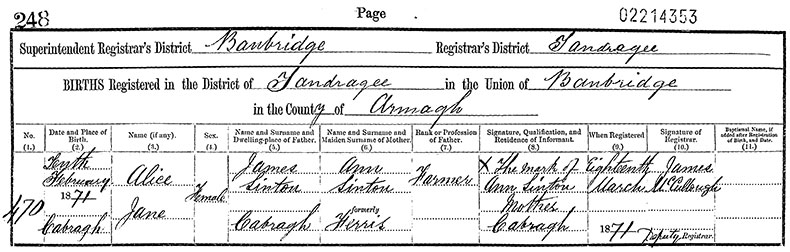 248 Page 02214353
Superintendent Registrar's District Banbridge Registrar's District Tandragee
BIRTHS Registered in the District of Tandragee in the Union of Banbridge
in the County of Armagh
No. (1.)
Date and Place of Birth. (2.)
Name (if any). (3.)
Sex. (4.)
Name and Surname and Dwelling-place of Father. (5.)
Name and Surname and Maiden Surname of Mother. (6.)
Rank or Profession of Father. (7.)
Signature, Qualification, and Residence of Informant. (8.)
When Registered (9.)
Signature of Registrar. (10.)
Baptismal Name, if added after Registration of Birth, and Date. (11.)
470
Tenth
February
1871
Cabragh
Alice
Jane
Female
James
Sinton
Cabragh
Ann
Sinton
formerly
Ferris
Farmer
X The mark of
Ann Sinton
Mother
Cabragh
Eighteenth
March
1871
James
McCullough
Deputy Registrar.